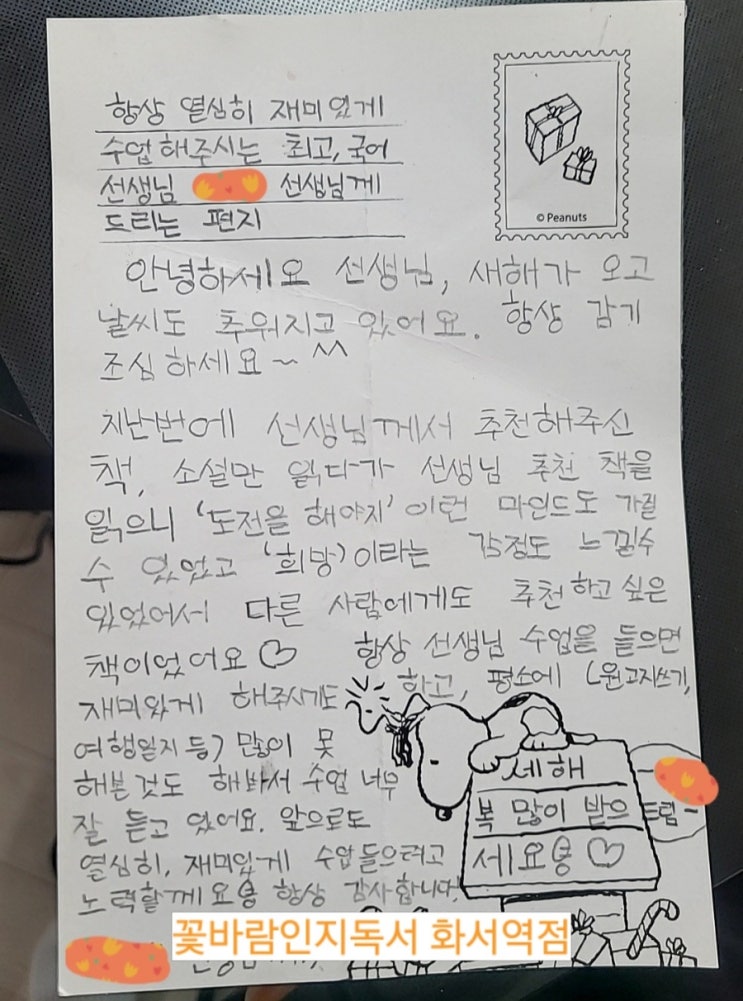 항상 열심히 재미있게
수업해주시는 최고, 국어
선생님 선생님께
드리는 편지
© Peanuts
안녕하세요 선생님, 새해가 오고
날씨도 추워지고 있어요. 항상 감기
조심하세요~ ^^
지난번에 선생님께서 추천해주신
책, 소설만 읽다가 선생님 추천 책을
읽으니 '도전을 해야지' 이런 마인드도 가질
수 있었고 '희망'이라는 감정도 느낄수
있었어서 다른 사람에게도 추천하고 싶은
책이었어요♡ 항상 선생님 수업을 들으면
재미있게 해주시기도 하고, 평소에 (원고지쓰기,
여행일지 등) 많이 못
해본것도 해봐서 수업 너무
잘 듣고 있어요. 앞으로도
열심히, 재미있게 수업들으려고
노력할께요용 항상 감사합니다!
세해
복 많이 받으
세요용♡
드림-
꽃바람인지독서 화서역점